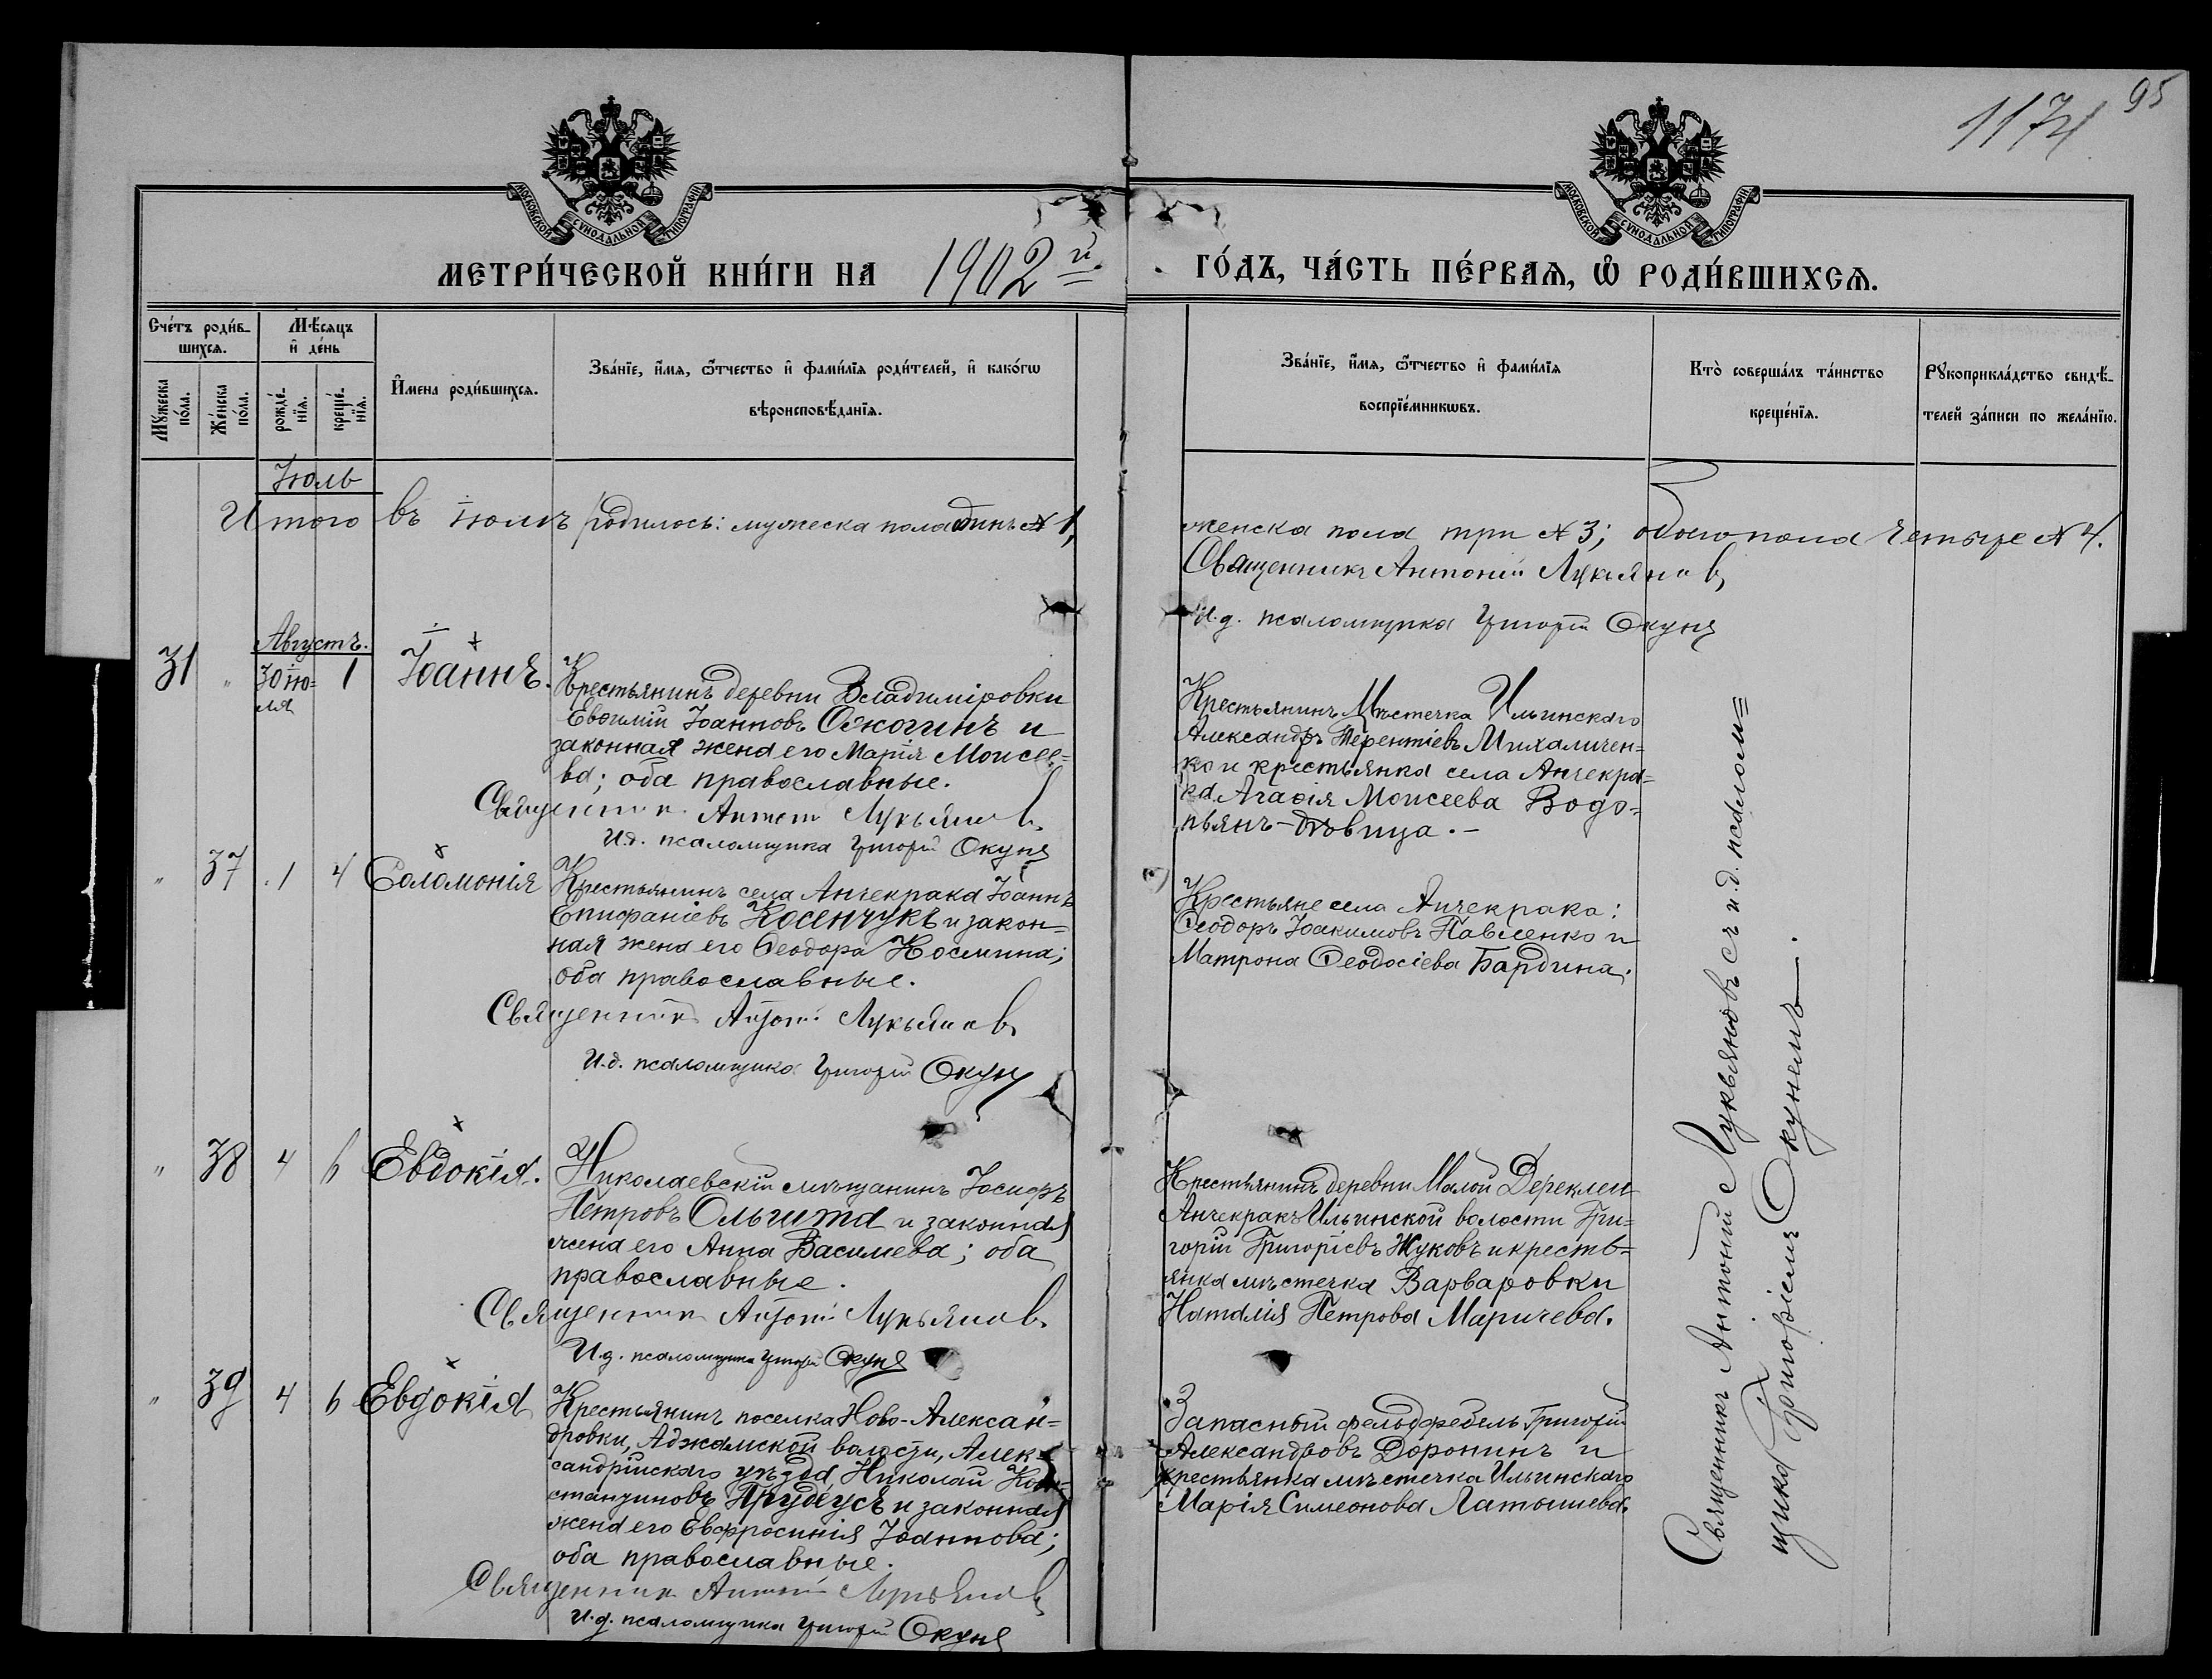 95
1174
МОСКОВСКОЙ СУНОДАЛЬНОЙ ТИПОГРАФІИ
МОСКОВСКОЙ СУНОДАЛЬНОЙ ТИПОГРАФІИ
МЕТРИ́ЧЕСКОЙ КНИ́ГИ НА 1902й
ГО́ДЪ, ЧА́СТЬ ПЕ́РВАѦ, Ѡ҆ РОДИ́ВШИХСѦ.
Сче́тъ роди́в-
шихсѧ.
Мꙋжеска по́ла.
Же́нска по́ла.
Мѣ́сѧцъ
и҆ де́нь
рожде́-
нїѧ.
креще́-
нїѧ.
И҆мена роди́вшихсѧ.
Зва́нїе, и҆́мѧ, ѻ҆́тчество и҆ фами́лїѧ роди́телей, и҆ како́гѡ
вѣроисповѣ́данїѧ.
Зва́нїе, и҆́мѧ, ѻ҆́тчество и҆ фами́лїѧ
воспрїе́мникѡвъ.
Кто̀ соверша́лъ та́инство
креще́нїѧ.
Рꙋкоприкла́дство свидѣ́-
телей за́писи по жела́нїю.
Іюль
Итого въ іюлѣ родилось: мужеска пола одинъ № 1,
женска пола три № 3; обоего пола четыре № 4.
Священникъ Антоній Лукьянов
И.д. псаломщика Григорій Окунь
Августъ.
31 " 30 ію=
ля
1 Іоаннъ.
Крестьянинъ деревни Владиміровки
Евѳимій Іоанновъ Ожогинъ и
законная жена его Марія Моисее=
ва; оба православные.
Священник Антоній Лукьянов
И.д. псаломщика Григорій Окунь
Крестьянинъ Мѣстечка Ильинскаго
Александръ Терентіевъ Михаличен=
ко и крестьянка села Анчекра=
ка Агаѳія Моисеева Водо=
пьянъ-дѣвица.-
" 37 1 4 Соломонія
Крестьянинъ села Анчекрака Іоаннъ
Епифаніевъ Косенчукъ и закон=
ная жена его Ѳеодора Космина;
оба православные.
Священник Антоній Лукьянов
И.д. псаломщика Григорій Окунь
Крестьяне села Анчекрака:
Ѳеодоръ Іоакимовъ Павленко и
Матрона Ѳеодосіева Бардина.
" 38 4 6 Евдокія.
Николаевскій мѣщанинъ Іосифъ
Петровъ Ольшта и законная
жена его Анна Василиева; оба
православные.
Священник Антоній Лукьянов
И.д. псаломщика Григорій Окунь
Крестьянинъ деревни Малой Дереклеи
Анчекракъ Ильинской волости Гри=
горій Григоріевъ Жуковъ и кресть=
янка мѣстечка Варваровки
Наталія Петрова Маричева.
" 39 4 6 Евдокія
Крестьянинъ поселка Ново-Алексан=
дровки, Аджамской волости, Алек=
сандрійскаго уѣзда Николай Кон=
стантиновъ Прудеусъ и законная
жена его Евфросинія Іоаннова;
оба православные.
Священник Антоній Лукьянов
И.д. псаломщика Григорій Окунь
Запасный фельдфебель Григорій
Александровъ Доронинъ и
крестьянка мѣстечка Ильинскаго
Марія Симеонова Латышева.
Священникъ Антоній Лукьяновъ съ и.д. псалом=
щика Григоріемъ Окунемъ.